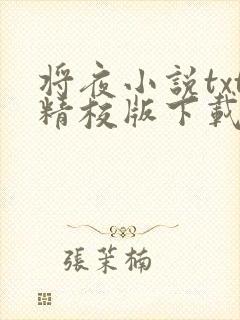 将夜小説txt
精校版下載
張茉楠